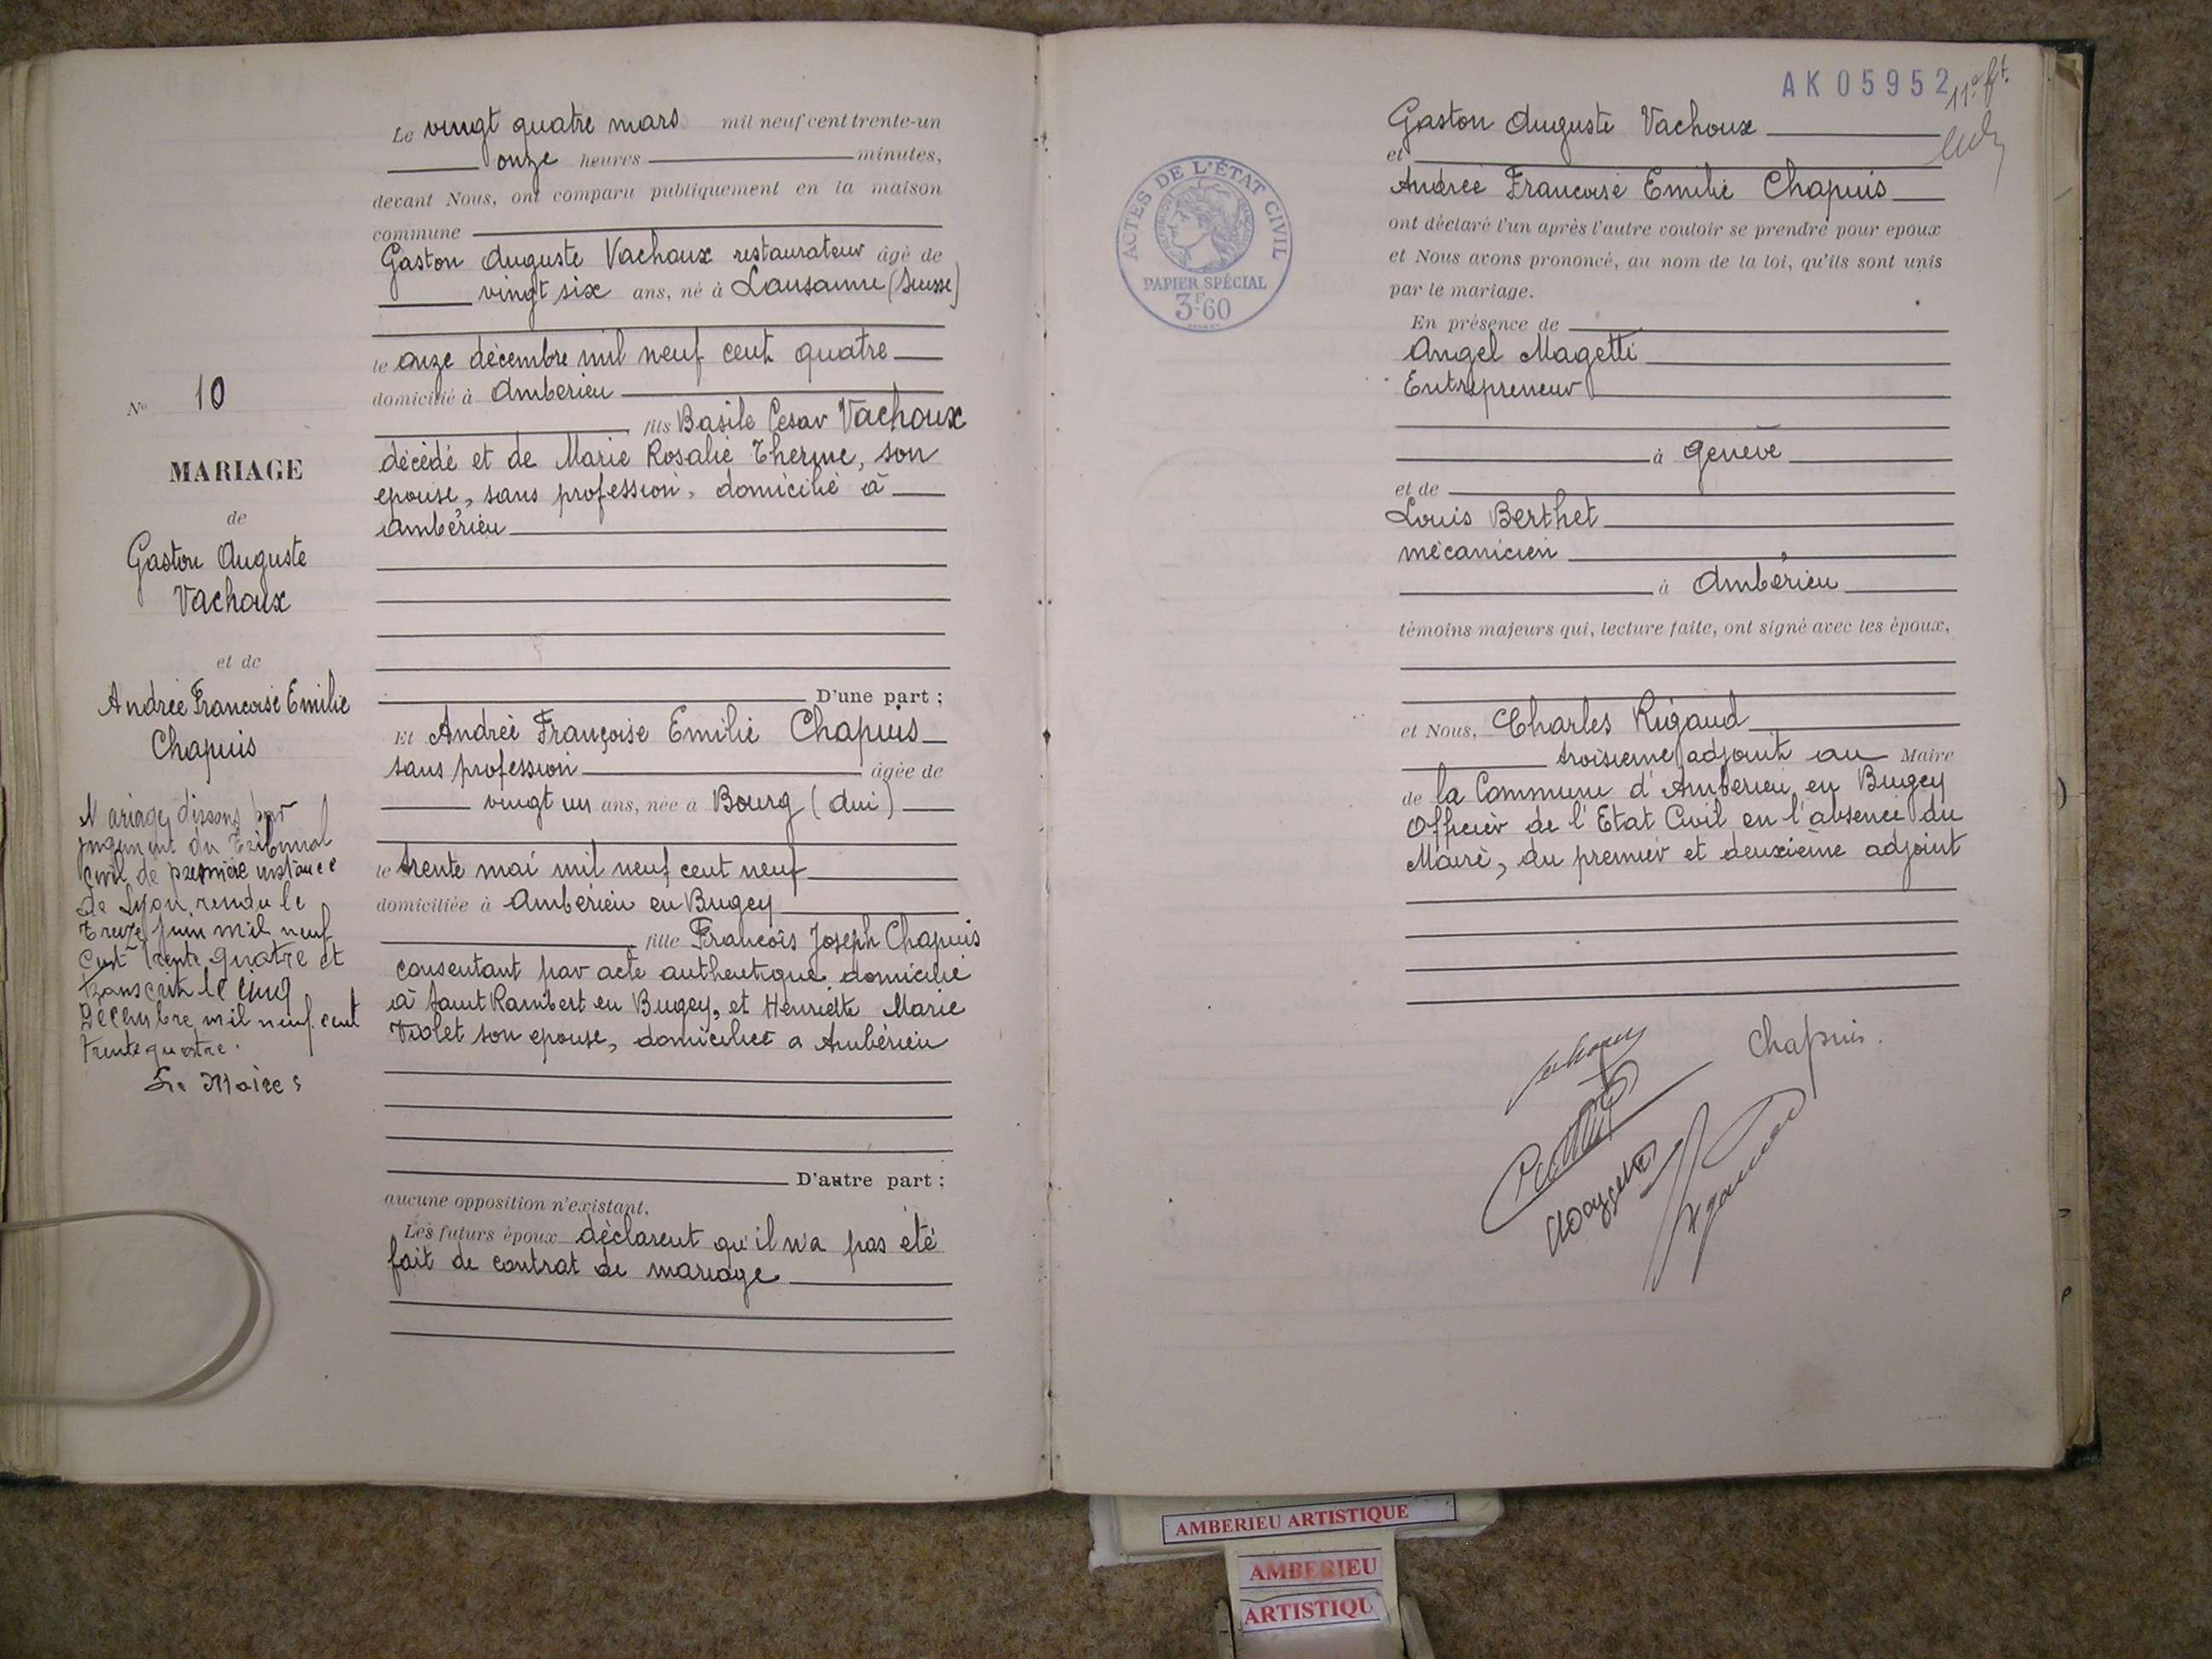 Le vingt quatre mars mil neuf cent trente-un
onze heures minutes,
devant Nous, ont comparu publiquement en la maison
commune
Gaston Auguste Vachoux restaurateur âgé de
vingt six ans, né à Lausanne (Suisse)
le onze décembre mil neuf cent quatre
domicilié à Amberieu
fils Basile Cesar Vachoux
décédé et de Marie Rosalie Therme, son
epouse, sans profession, domicilié à
Ambérieu
D'une part ;
Et Andrée Françoise Emilie Chapuis
sans profession âgée de
vingt un ans, née à Bourg (Ain)
le trente mai mil neuf cent neuf
domiciliée à Ambérieu en Bugey
fille François Joseph Chapuis
consentant par acte authentique domicilié
à Saint Rambert en Bugey, et Henriette Marie
Violet son epouse, domiciliée a Ambérieu
D'autre part ;
aucune opposition n'existant,
Les futurs époux déclarent qu'il n'a pas été
fait de contrat de mariage
No 10
MARIAGE
de
Gaston Auguste
Vachoux
et de
Andrée Francoise Emilie
Chapuis
Mariage dissous par
jugement du Tribunal
Civil de première instance
de Lyon, rendu le
treize juin mil neuf
cent trente quatre et
transcrit le cinq
Décembre mil neuf cent
trente quatre.
Le Maire
AK 05952
11e ft.
ACTES DE L'ÉTAT CIVIL
PAPIER SPÉCIAL
3F60
Gaston Auguste Vachoux
et
Andrée Francoise Emilie Chapuis
ont déclaré l'un après l'autre vouloir se prendre pour epoux
et Nous avons prononcé, au nom de la loi, qu'ils sont unis
par le mariage.
En présence de
Angel Magetti
Entrepreneur
à Genève
et de
Louis Berthet
mécanicien
à Ambérieu
témoins majeurs qui, lecture faite, ont signé avec les époux,
et Nous, Charles Rigaud
troisieme adjoint au Maire
de la Commune d'Amberieu en Bugey
Officier de l'Etat Civil en l'absence du
Maire, du premier et deuxième adjoint
Chapuis.
AMBERIEU ARTISTIQUE
AMBERIEU
ARTISTIQU